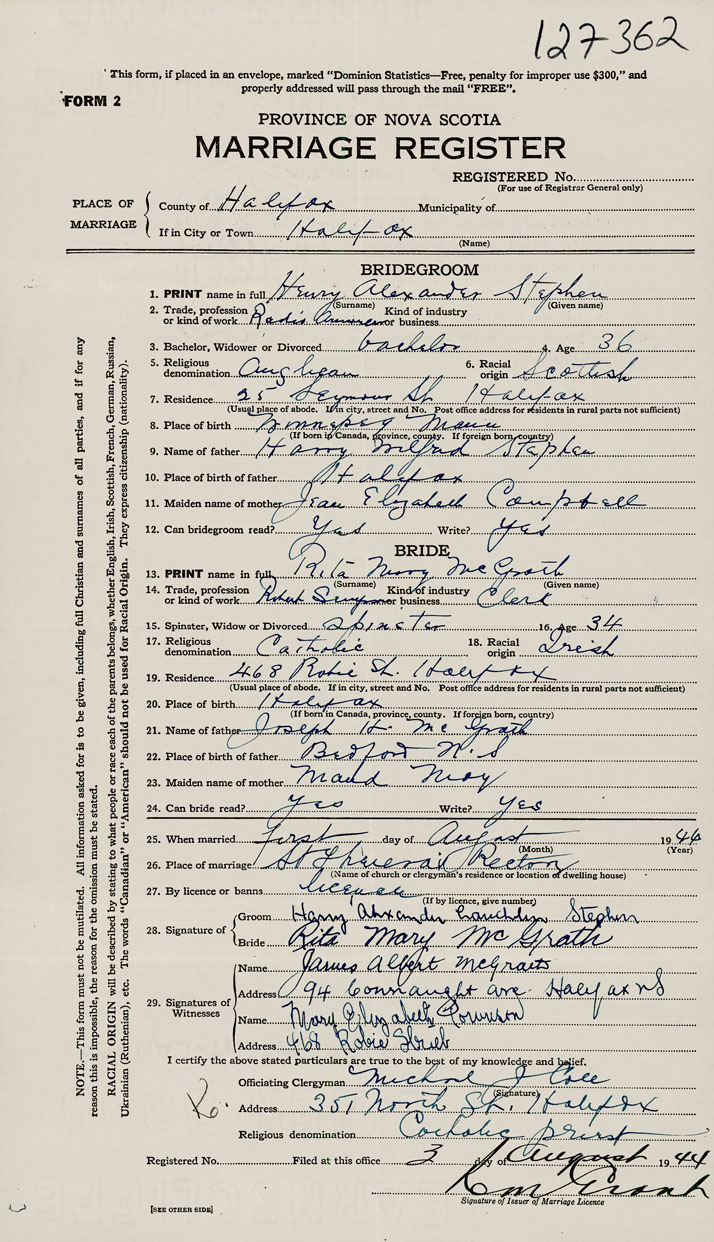 127362
This form, if placed in an envelope, marked "Dominion Statistics—Free, penalty for improper use $300," and
properly addressed will pass through the mail "FREE".
FORM 2
PROVINCE OF NOVA SCOTIA
MARRIAGE REGISTER
REGISTERED No.
(For use of Registrar General only)
PLACE OF MARRIAGE
County of Halifax Municipality of
If in City or Town Halifax
(Name)
BRIDEGROOM
1. PRINT name in full Henry Alexander Stephen
(Surname) (Given name)
2. Trade, profession or kind of work Radio Kind of industry or business
3. Bachelor, Widower or Divorced bachelor 4. Age 36
5. Religious denomination Anglican 6. Racial origin Scottish
7. Residence 25 Seymour St Halifax
(Usual place of abode. If in city, street and No. Post office address for residents in rural parts not sufficient)
8. Place of birth Winnipeg Mann
(If born in Canada, province, county. If foreign born, country)
9. Name of father Harry Wilfred Stephen
10. Place of birth of father Halifax
11. Maiden name of mother Jean Elizabeth Campbell
12. Can bridegroom read? Yes Write? Yes
BRIDE
13. PRINT name in full Rita Mary McGrath
(Surname) (Given name)
14. Trade, profession or kind of work Robert Simpson Kind of industry or business Clerk
15. Spinster, Widow or Divorced Spinster 16. Age 34
17. Religious denomination Catholic 18. Racial origin Irish
19. Residence 468 Robie St. Halifax
(Usual place of abode. If in city, street and No. Post office address for residents in rural parts not sufficient)
20. Place of birth Halifax
(If born in Canada, province, county. If foreign born, country)
21. Name of father Joseph H. McGrath
22. Place of birth of father Bedford N.S
23. Maiden name of mother Maud May
24. Can bride read? Yes Write? Yes
25. When married First day of August 1944
(Month) (Year)
26. Place of marriage St
(Name of church or clergyman's residence or location of dwelling house)
27. By licence or banns license
(If by licence, give number)
28. Signature of
Groom Henry Alexander Lauchlin Stephen
Bride Rita Mary McGrath
29. Signatures of Witnesses
Name James Albert McGrath
Address 94 Connaught ave. Halifax NS
Name Mary Elizabeth
Address 468 Robie Street
I certify the above stated particulars are true to the best of my knowledge and belief.
Officiating Clergyman Michael J Cole
(Signature)
Address 351 North St. Halifax
Religious denomination Catholic priest
Registered No. Filed at this office 3 day of August 1944
Signature of Issuer of Marriage Licence
[SEE OTHER SIDE]
NOTE.—This form must not be mutilated. All information asked for is to be given, including full Christian and surnames of all parties, and if for any
reason this is impossible, the reason for the omission must be stated.
RACIAL ORIGIN will be described by stating to what people or race each of the parents belongs, whether English, Irish, Scottish, French, German, Russian,
Ukrainian (Ruthenian), etc. The words "Canadian" or "American" should not be used for Racial Origin. They express citizenship (nationality).